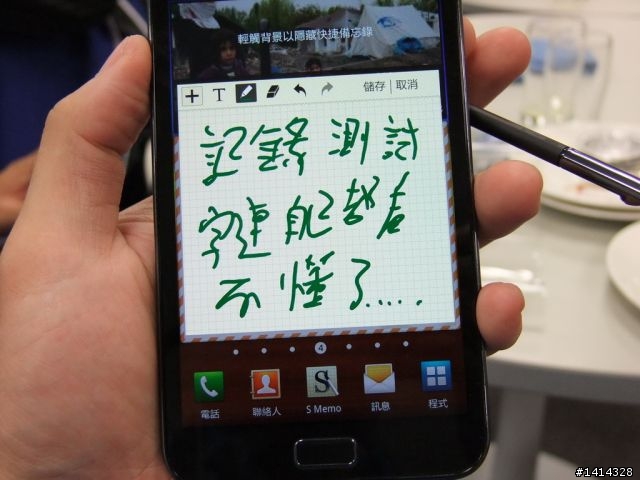 輕觸背景以隱藏快捷備忘錄
T 儲存 | 取消
記錄測試
字連自己都看
不懂了.....
4
S
電話 聯絡人 S Memo 訊息 程式
#1414328